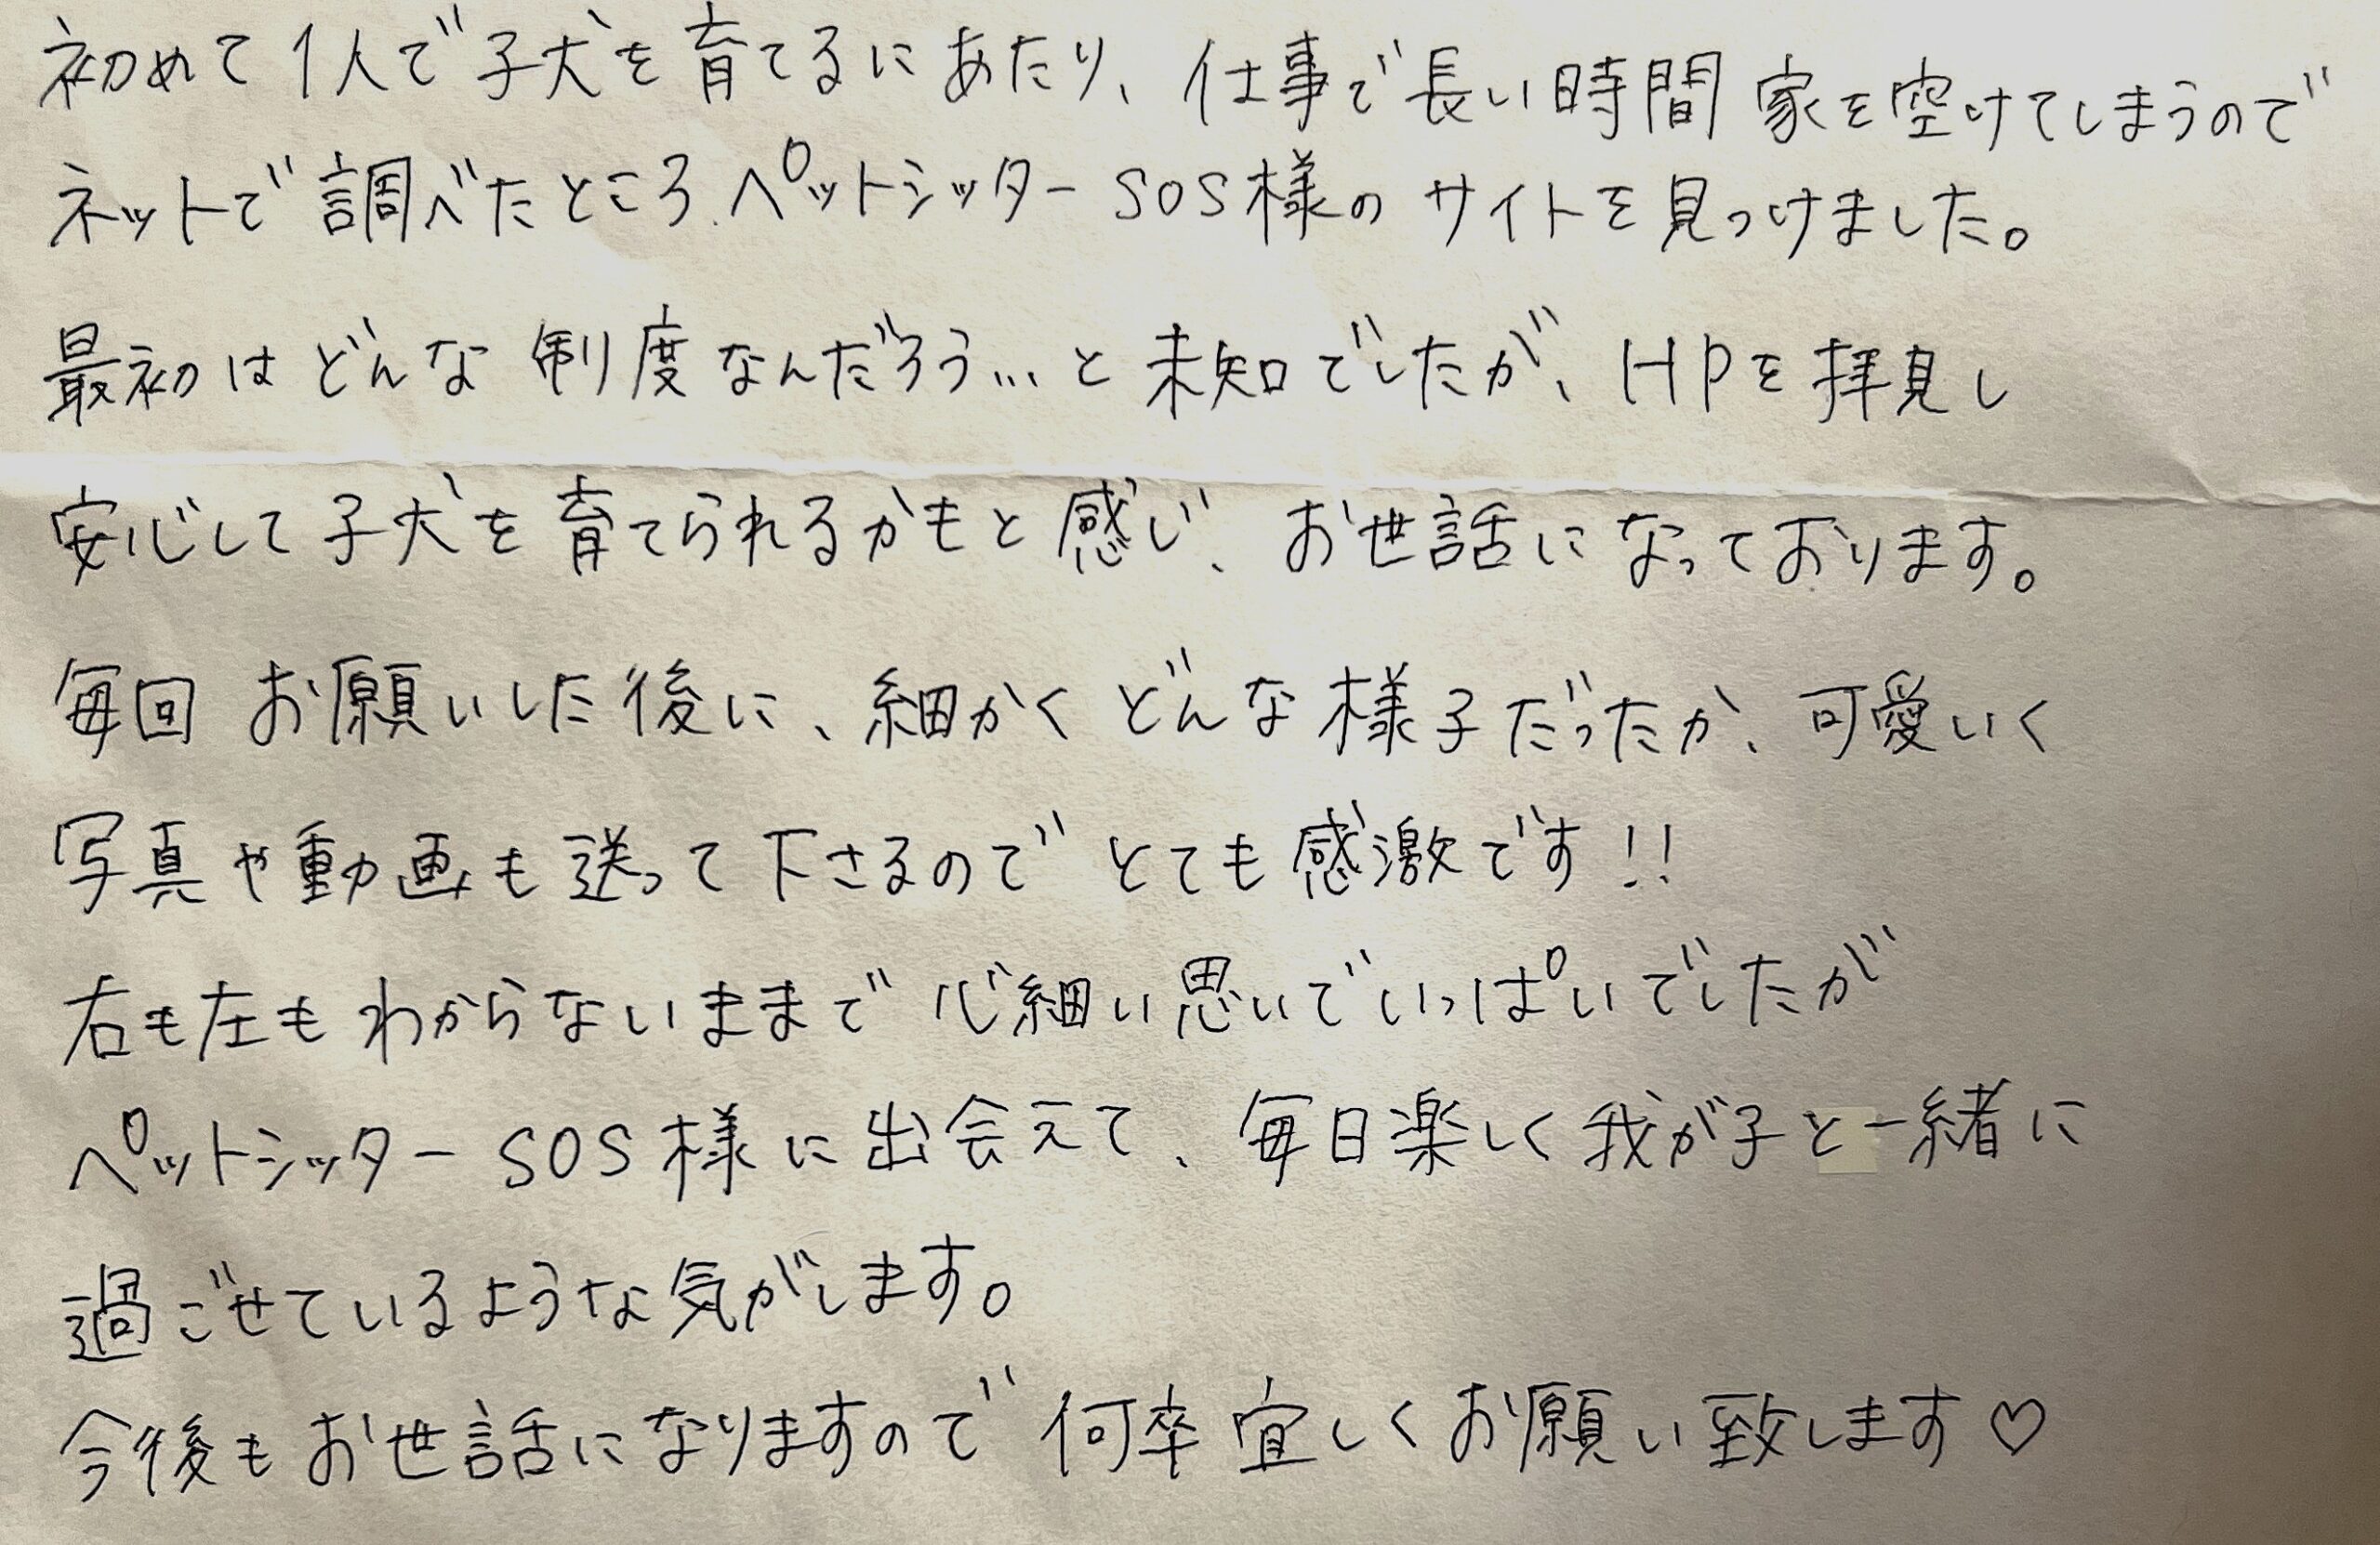 初めて1人で子犬を育てるにあたり、仕事で長い時間家を空けてしまうので
ネットで調べたところ、ペットシッターSOS様のサイトを見つけました。
最初はどんな制度なんだろう…と未知でしたが、HPを拝見し
安心して子犬を育てられるかもと感じ、お世話になっております。
毎回お願いした後に、細かくどんな様子だったか、可愛いく
写真や動画も送って下さるのでとても感激です!!
右も左もわからないままで心細い思いでいっぱいでしたが
ペットシッターSOS様に出会えて、毎日楽しく我が子と一緒に
過ごせているような気がします。
今後もお世話になりますので何卒宜しくお願い致します♡